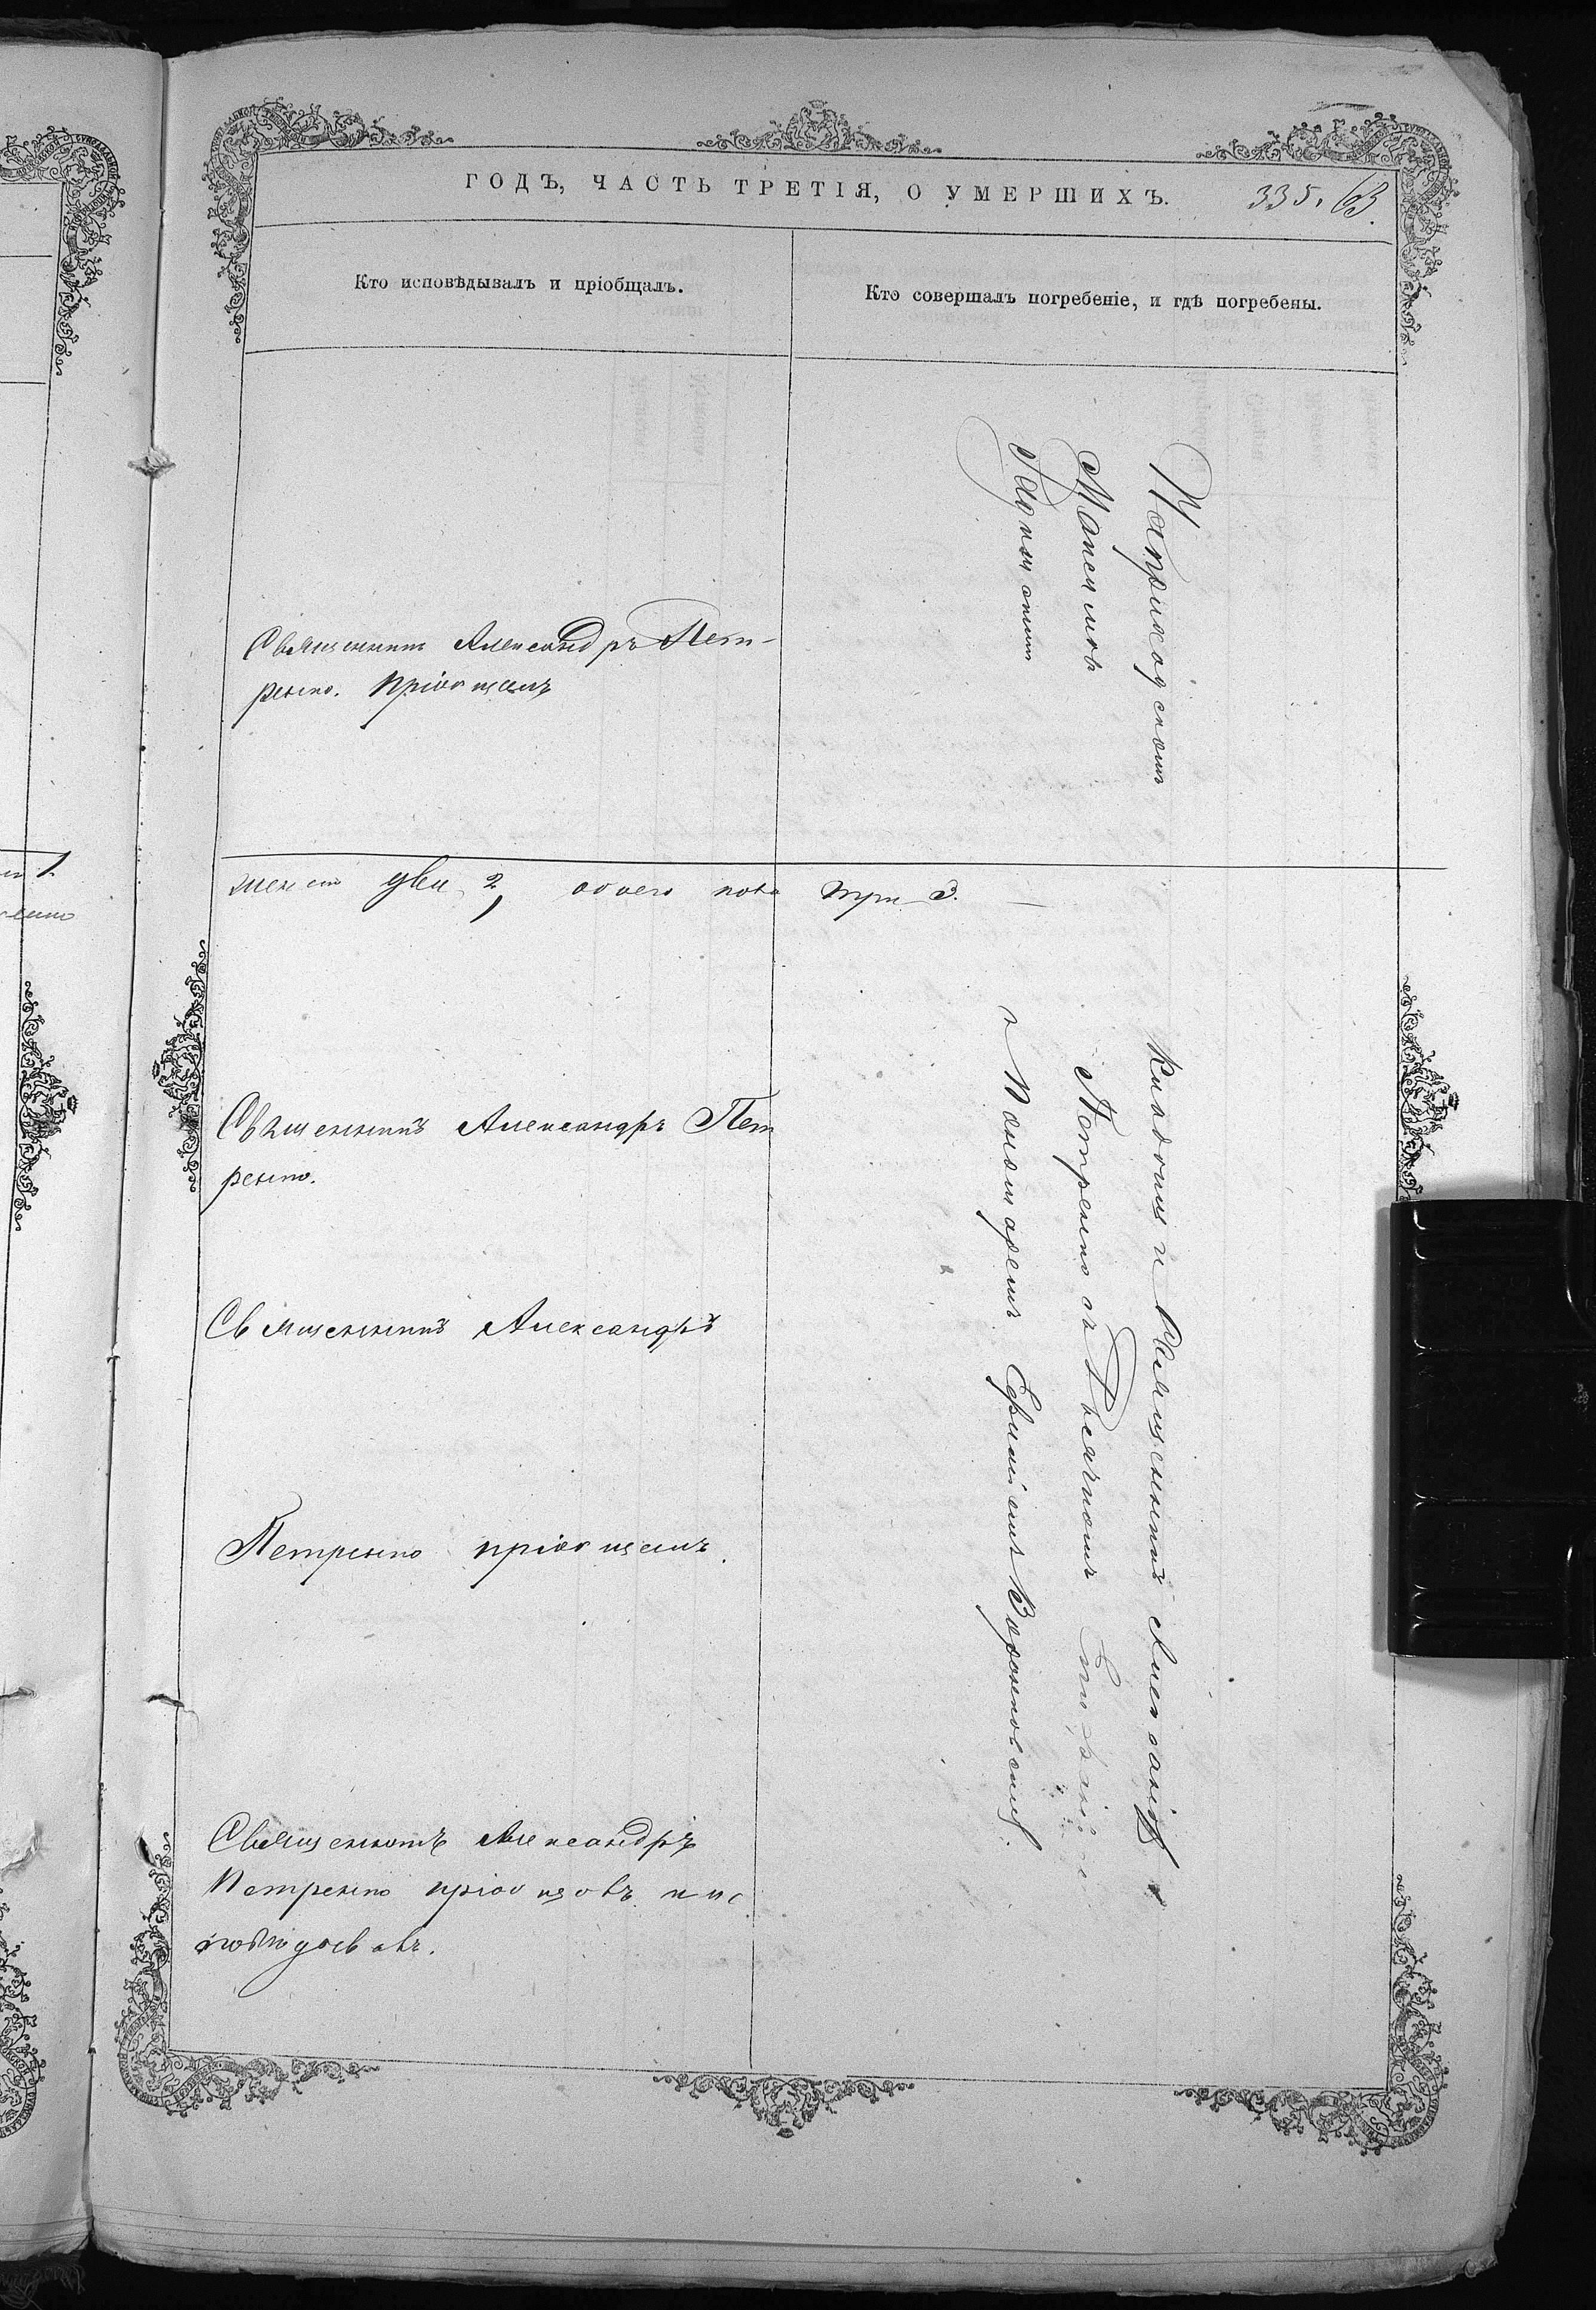 ГОДЪ, ЧАСТЬ ТРЕТІЯ, О УМЕРШИХЪ.
335. 63.
Кто исповѣдывалъ и пріобщалъ.
Кто совершалъ погребеніе, и гдѣ погребены.
Священникъ Александръ Пет-
ренко. Пріобщалъ
На приходскомъ
женск. двѣ 2, обоего пола три 3.
Священникъ Александръ Пет
ренко.
Священникъ Александръ
Петренко пріобщалъ.
Священникъ Александръ
Петренко пріобщавъ и ис
повѣдовавъ.
Кладбищи Священникъ Александръ
Петренко съ Дьячкомъ
и Пономаремъ Ефиміемъ